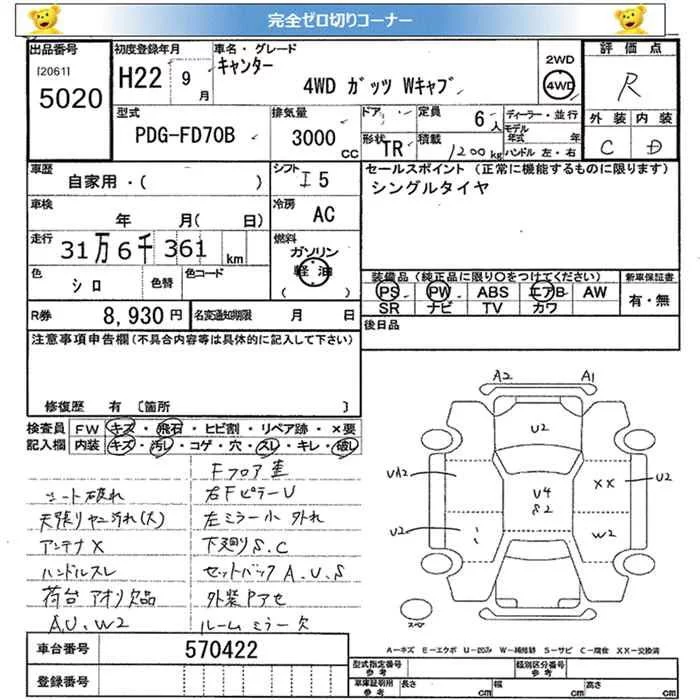 完全ゼロ切りコーナー
出品番号
[2061]
5020
初度登録年月
H22 9月
車名・グレード
キャンター
4WD ガッツ Wキャブ
2WD
4WD
評価点
R
外装 内装
C D
型式
PDG-FD70B
排気量
3000 CC
ドア
形状
TR
定員
6人
積載
1200kg
ディーラー・並行
モデル年式 年
ハンドル 左・右
車歴
自家用・( )
シフト
I 5
車検
年 月( 日)
冷房
AC
走行
31万6千361km
燃料
ガソリン
軽油
( )
色
シロ
色替
色コード
R券
8,930円
名変通知期限 月 日
セールスポイント (正常に機能するものに限ります)
シングルタイヤ
装備品 (純正品に限り〇をつけてください)
PS PW ABS エアB AW
SR ナビ TV カワ
新車保証書
有・無
後日品
注意事項申告欄(不具合内容等は具体的に記入して下さい)
修復歴 有 〔箇所 〕
検査員記入欄
FW キズ・飛石・ヒビ割・リペア跡・×要
内装 キズ・汚し・コゲ・穴・スレ・キレ・破し
シート破れ
天張りヤニ汚れ(大)
アンテナX
ハンドルスレ
荷台アオリ欠品
A.U.W2
Fフロア歪
右FピラーU
左ミラー小 外れ
下廻りS.C
セットバックA.U.S
外装Pアセ
ルームミラー欠
A2 A1
U2
UA2
XX
U2
U4
S2
U2
W2
スペ
A−キズ E−エクボ U−凹み W−補修跡 S−サビ C−腐食 XX−交換済
車台番号
570422
登録番号
型式指定番号
参考
類別区分番号
参考
車庫証明用
参考
長さ cm 幅 cm 高さ cm